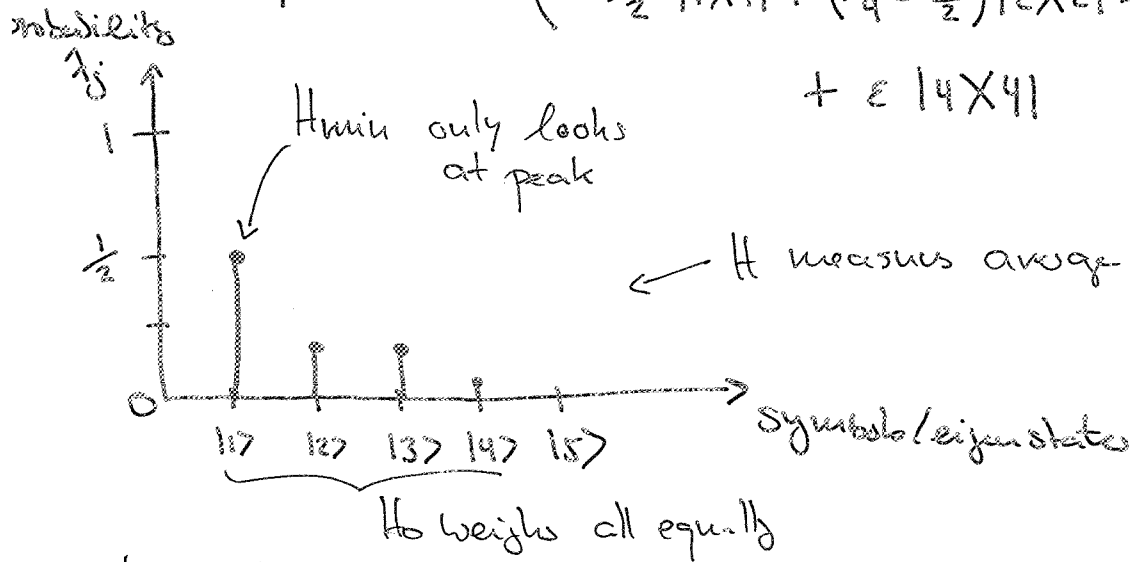 1/2 |1X1| + (1/4 - ε/2) |2X2| +
+ ε |4X4|
probability
λj
1
Hmin only looks
at peak
1/2
H measures average
0
|1> |2> |3> |4> |5>
symbols/eigenstates
Ho weighs all equally